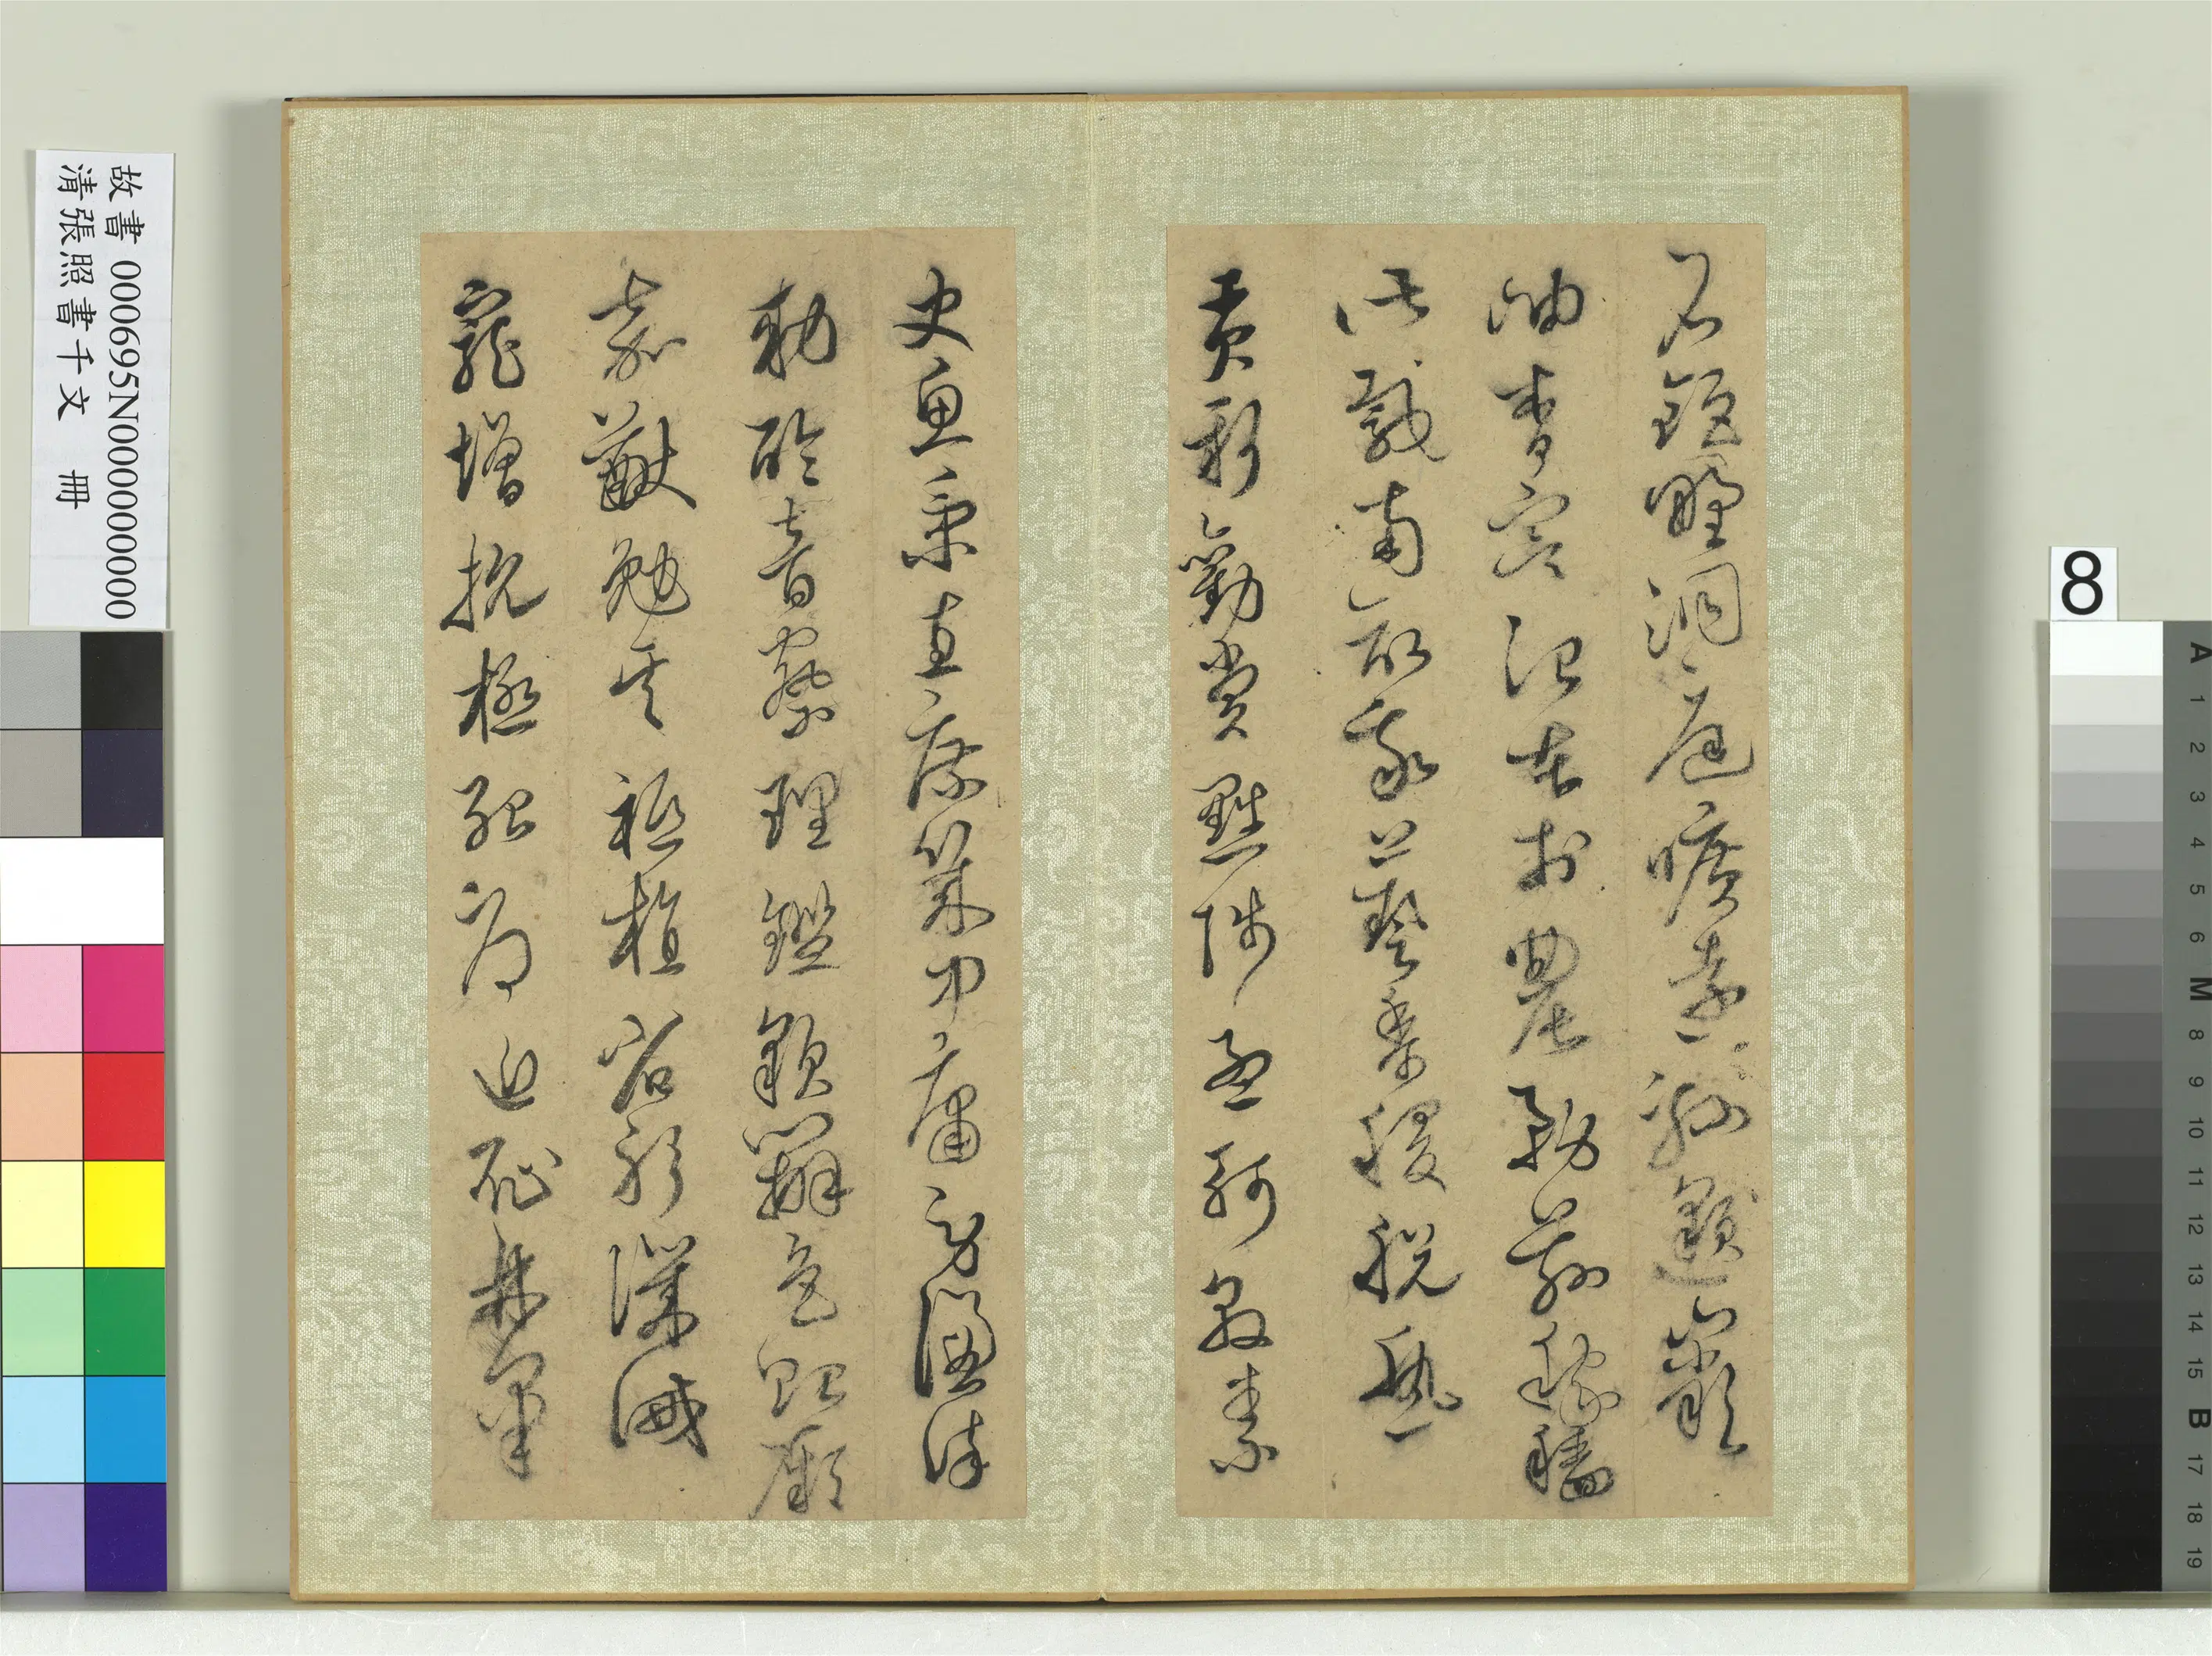 石鉅野洞庭曠遠緜邈巖
岫杳冥治本於農務茲稼穡
俶載南畝我藝黍稷稅熟
貢新勸賞黜陟孟軻敦素
史魚秉直庶幾中庸勞謙謹
勑聆音察理鑑貌辨色貽厥
嘉猷勉其祗植省躬譏誡
寵增抗極殆辱近恥林皋
故書 000695N000000000
清張照書千文 冊
8
A 1 2 3 4 5 6 M 8 9 10 11 12 13 14 15 B 17 18 19